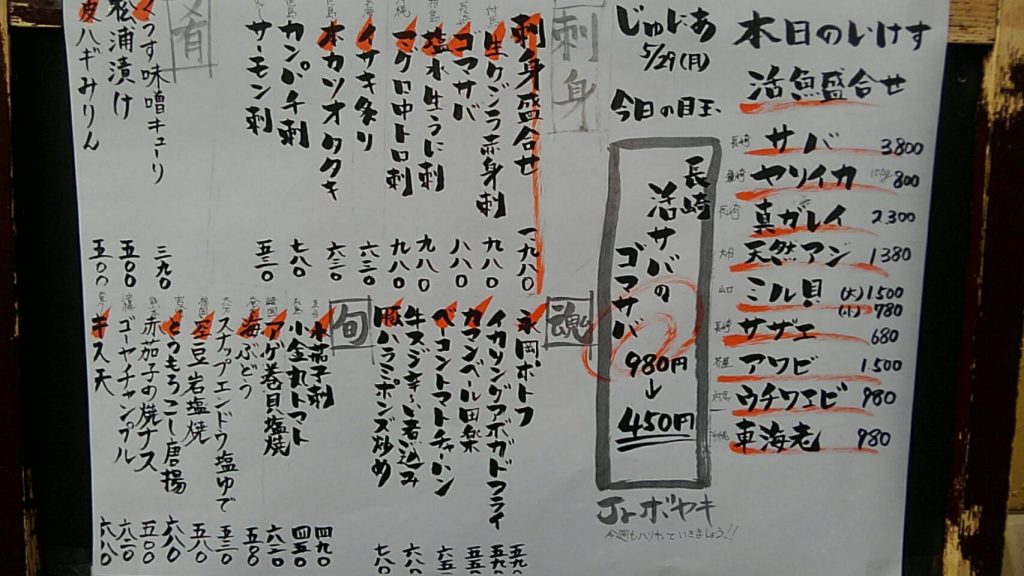 本日のいけす
活魚盛合せ
長崎 サバ 3800
長崎 ヤリイカ 100g 800
長崎 真ガレイ 2300
大分 天然アジ 1380
山口 ミル貝 (大)1500
(小)780
長崎 サザエ 680
アワビ 1500
ウチワエビ 980
沖縄 車海老 980
じゅにあ
5/29(月)
今日の目玉
長崎
活サバの
ゴマサバ
980円
↓
450円
Jrボヤキ
今週もハリきっていきましょう!!
刺身
刺身盛合せ 一九八〇
生クジラ赤身刺 九八〇
ゴマサバ 八八〇
塩水生うに刺 九八〇
マグロ中トロ刺 九八〇
イサキ炙り 六三〇
本カツオタタキ 六三〇
カンパチ刺 七八〇
サーモン刺 五三〇
肴
味噌キューリ 三九〇
松浦漬け 五〇〇
皮ハギみりん 五〇〇
魂
永岡ポトフ
イカリングアボガドフライ
カマンベール田楽
ベーコントマトチャーハン
牛スジ辛〜い煮込み 六八〇
豚ハラミポンズ炒め 七八〇
旬
水茄子刺 四九〇
小金丸トマト 四五〇
アゲ巻貝塩焼 六三〇
海ぶどう 五八〇
スナップエンドウ塩ゆで 五三〇
空豆岩塩焼 五八〇
とうもろこし唐揚 六八〇
赤茄子の焼ナス 五〇〇
ゴーヤチャンプル 六三〇
キス天 六八〇